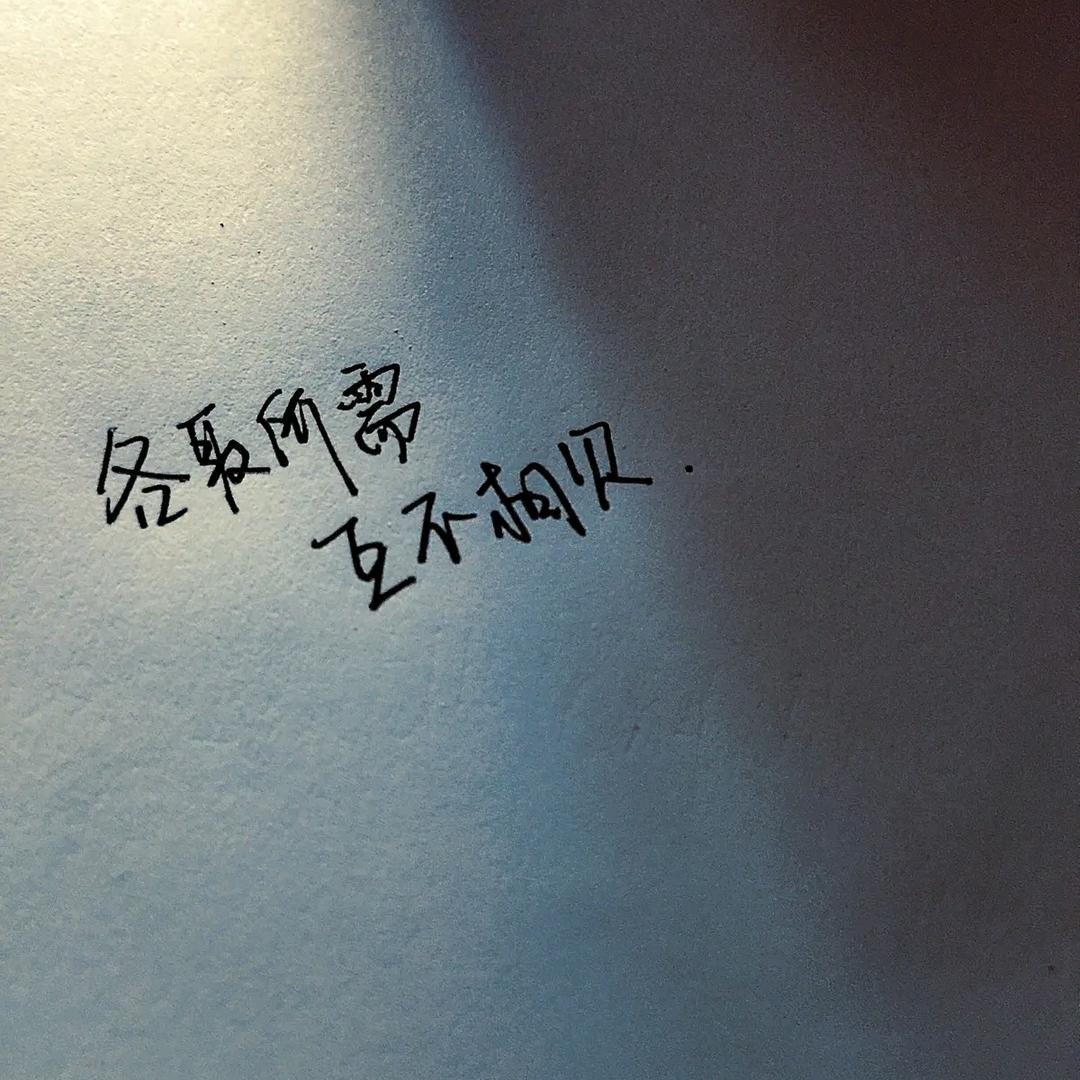 各取所需
互不相欠.